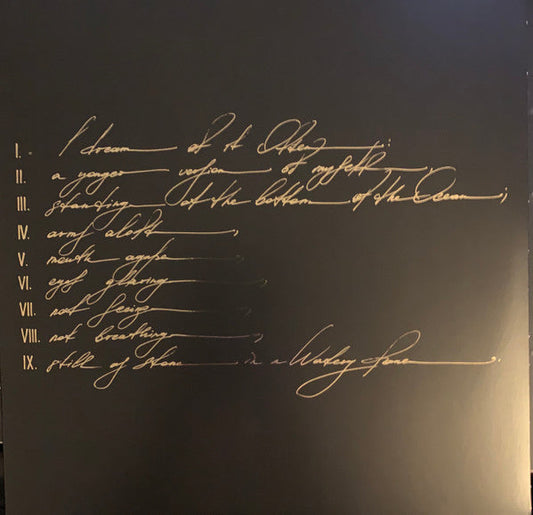 I.- I dream of it Often:
II. a yonger version of myself,
III. standing at the bottom of the Ocean;
IV. arms aloft,
V. mouth agape,
VI. eyes glaring,
VII. not seeing,
VIII. not breathing,
IX. still as stone in a Watery Fane.